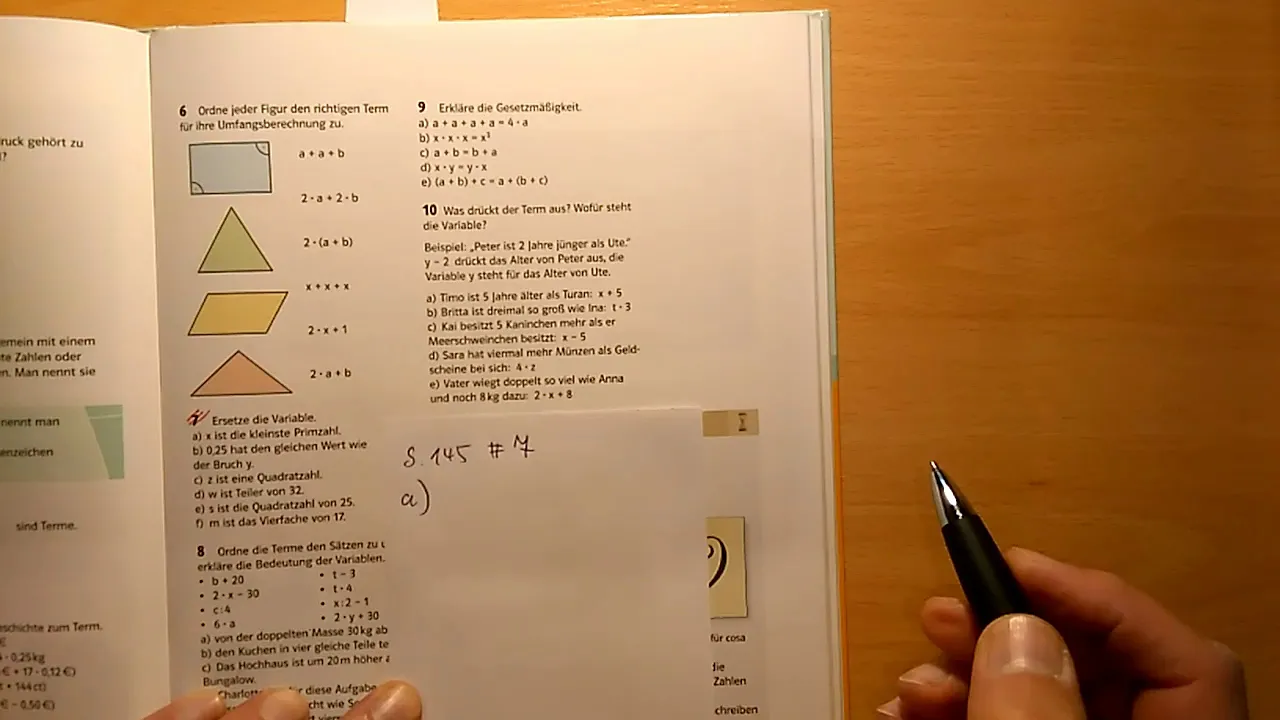 ruck gehört zu
?
emein mit einem
te Zahlen oder
en. Man nennt sie
nennt man
enzeichen
sind Terme.
eschichte zum Term.
€
· 0,25 kg
€ + 17 · 0,12 €)
t + 144 ct)
€ – 0,50 €)
6 Ordne jeder Figur den richtigen Term
für ihre Umfangsberechnung zu.
a + a + b
2 · a + 2 · b
2 · (a + b)
x + x + x
2 · x + 1
2 · a + b
Ersetze die Variable.
a) x ist die kleinste Primzahl.
b) 0,25 hat den gleichen Wert wie
der Bruch y.
c) z ist eine Quadratzahl.
d) w ist Teiler von 32.
e) s ist die Quadratzahl von 25.
f) m ist das Vierfache von 17.
8 Ordne die Terme den Sätzen zu u
erkläre die Bedeutung der Variablen.
• b + 20
• 2 · x – 30
• c : 4
• 6 · a
• t – 3
• t · 4
• x : 2 – 1
• 2 · y + 30
a) von der doppelten Masse 30 kg ab
b) den Kuchen in vier gleiche Teile te
c) Das Hochhaus ist um 20 m höher a
Bungalow.
Charlott für diese Aufgabe
cht wie S
9 Erkläre die Gesetzmäßigkeit.
a) a + a + a + a = 4 · a
b) x · x · x = x³
c) a + b = b + a
d) x · y = y · x
e) (a + b) + c = a + (b + c)
10 Was drückt der Term aus? Wofür steht
die Variable?
Beispiel: „Peter ist 2 Jahre jünger als Ute.“
y – 2 drückt das Alter von Peter aus, die
Variable y steht für das Alter von Ute.
a) Timo ist 5 Jahre älter als Turan: x + 5
b) Britta ist dreimal so groß wie Ina: t · 3
c) Kai besitzt 5 Kaninchen mehr als er
Meerschweinchen besitzt: x – 5
d) Sara hat viermal mehr Münzen als Geld-
scheine bei sich: 4 · z
e) Vater wiegt doppelt so viel wie Anna
und noch 8 kg dazu: 2 · x + 8
S. 145 # 7
a)
für cosa
die
Zahlen
schreiben